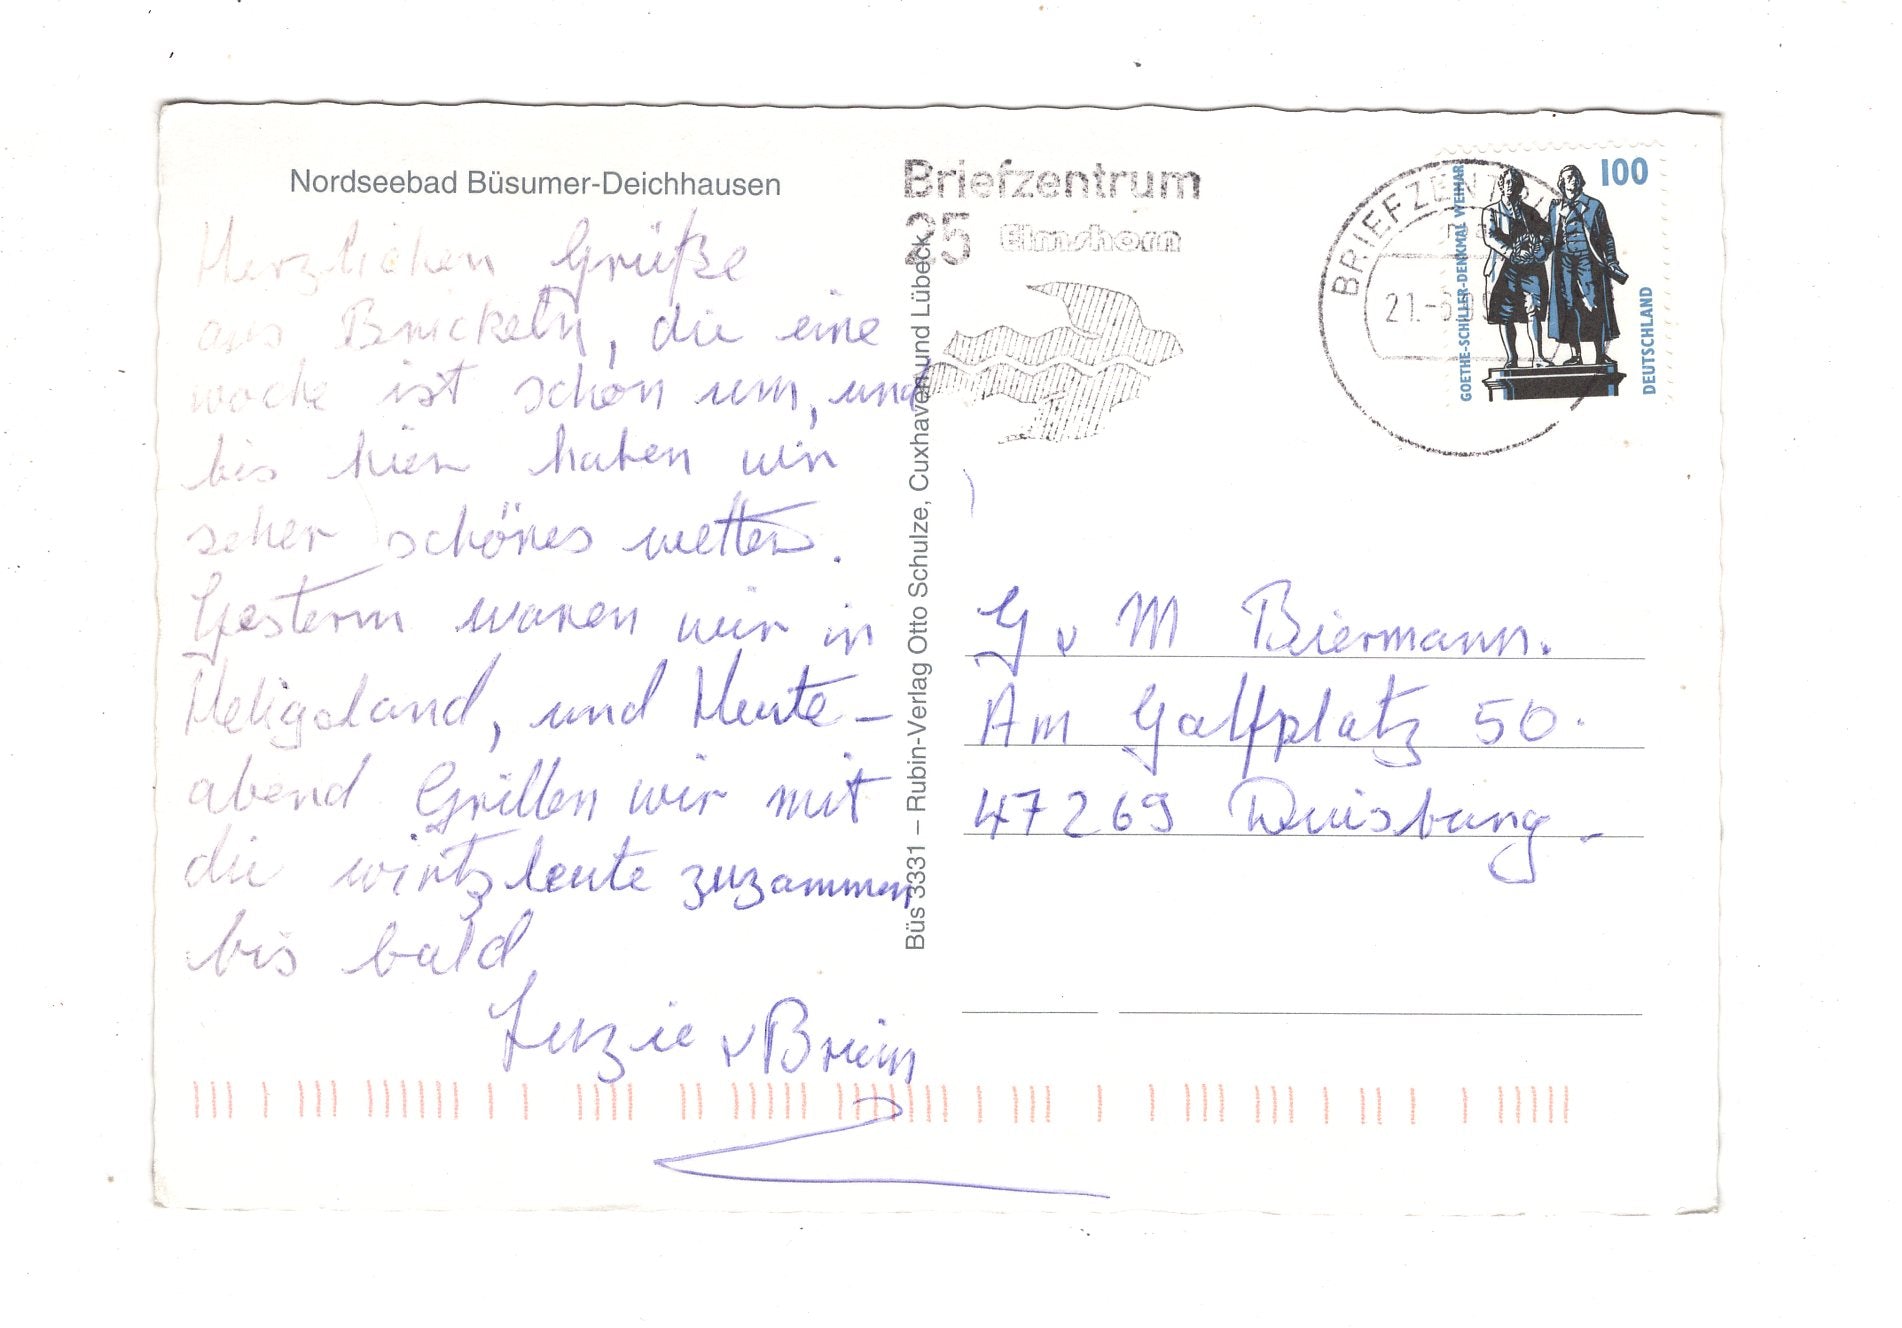 Nordseebad Büsumer-Deichhausen
Herzlichen Grüße
aus Brickeln, die eine
woche ist schon um, und
bis hier haben wir
seher schönes wetter.
Gestern waren wir in
Heligoland, und Heute-
abend Grillen wir mit
die wirtzleute zuzammen
bis bald
Büs 3331 – Rubin-Verlag Otto Schulze, Cuxhaven und Lübeck
Briefzentrum
25 Elmshorn
BRIEFZENTR
21.-6.
100
GOETHE-SCHILLER-DENKMAL WEIMAR
DEUTSCHLAND
G v M Biermann.
Am Galfplatz 50.
47269 Duisburg.